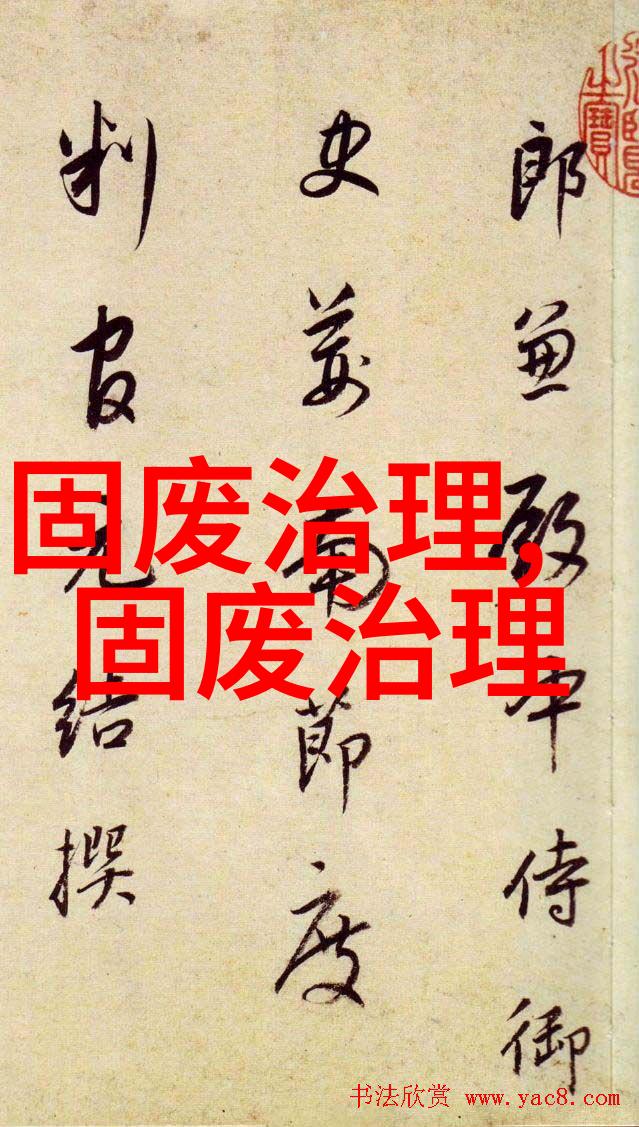 郎兼殿中侍御
史荊南節度
判官元結撰
固废治理,
固废治理
书法欣赏 www.yac8.com